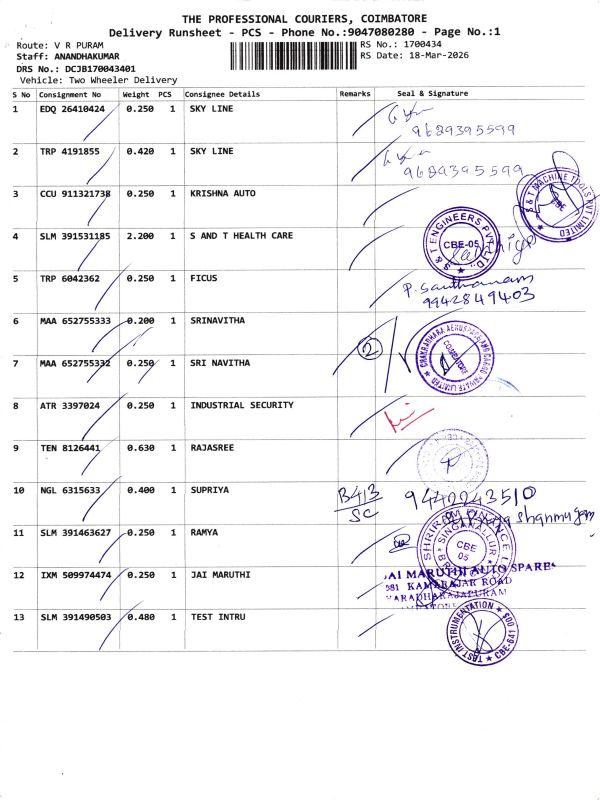 THE PROFESSIONAL COURIERS, COIMBATORE
Delivery Runsheet - PCS - Phone No.:9047080280 - Page No.:1
Route: V R PURAM
RS No.: 1700434
Staff: ANANDHAKUMAR
RS Date: 18-Mar-2026
DRS No.: DCJB170043401
Vehicle: Two Wheeler Delivery
S No Consignment No Weight PCS Consignee Details Remarks Seal & Signature
1 EDQ 26410424 0.250 1 SKY LINE
9689395599
2 TRP 4191855 0.420 1 SKY LINE
9689395599
3 CCU 911321738 0.250 1 KRISHNA AUTO
S & T MACHINE TOOLS PVT LIMITED CBE
4 SLM 391531185 2.200 1 S AND T HEALTH CARE
S & T ENGINEERS PVT LTD CBE-05
5 TRP 6042362 0.250 1 FICUS
P. Santhanam
9942849403
6 MAA 652755333 0.200 1 SRINAVITHA
2
CHAKRADHARA AEROSPACE AND CARGO PRIVATE LIMITED COIMBATORE
7 MAA 652755332 0.250 1 SRI NAVITHA
8 ATR 3397024 0.250 1 INDUSTRIAL SECURITY
9 TEN 8126441 0.630 1 RAJASREE
10 NGL 6315633 0.400 1 SUPRIYA
B413
SC
9442243510
Shanmugam
11 SLM 391463627 0.250 1 RAMYA
SHRIRAM FINANCE SINGANALLUR CBE 05
12 IXM 509974474 0.250 1 JAI MARUTHI
JAI MARUTHI AUTO SPARES
981 KAMARAJAR ROAD
VARADHARAJAPURAM
13 SLM 391490503 0.480 1 TEST INTRU
TEST INSTRUMENTATION CBE-641 005